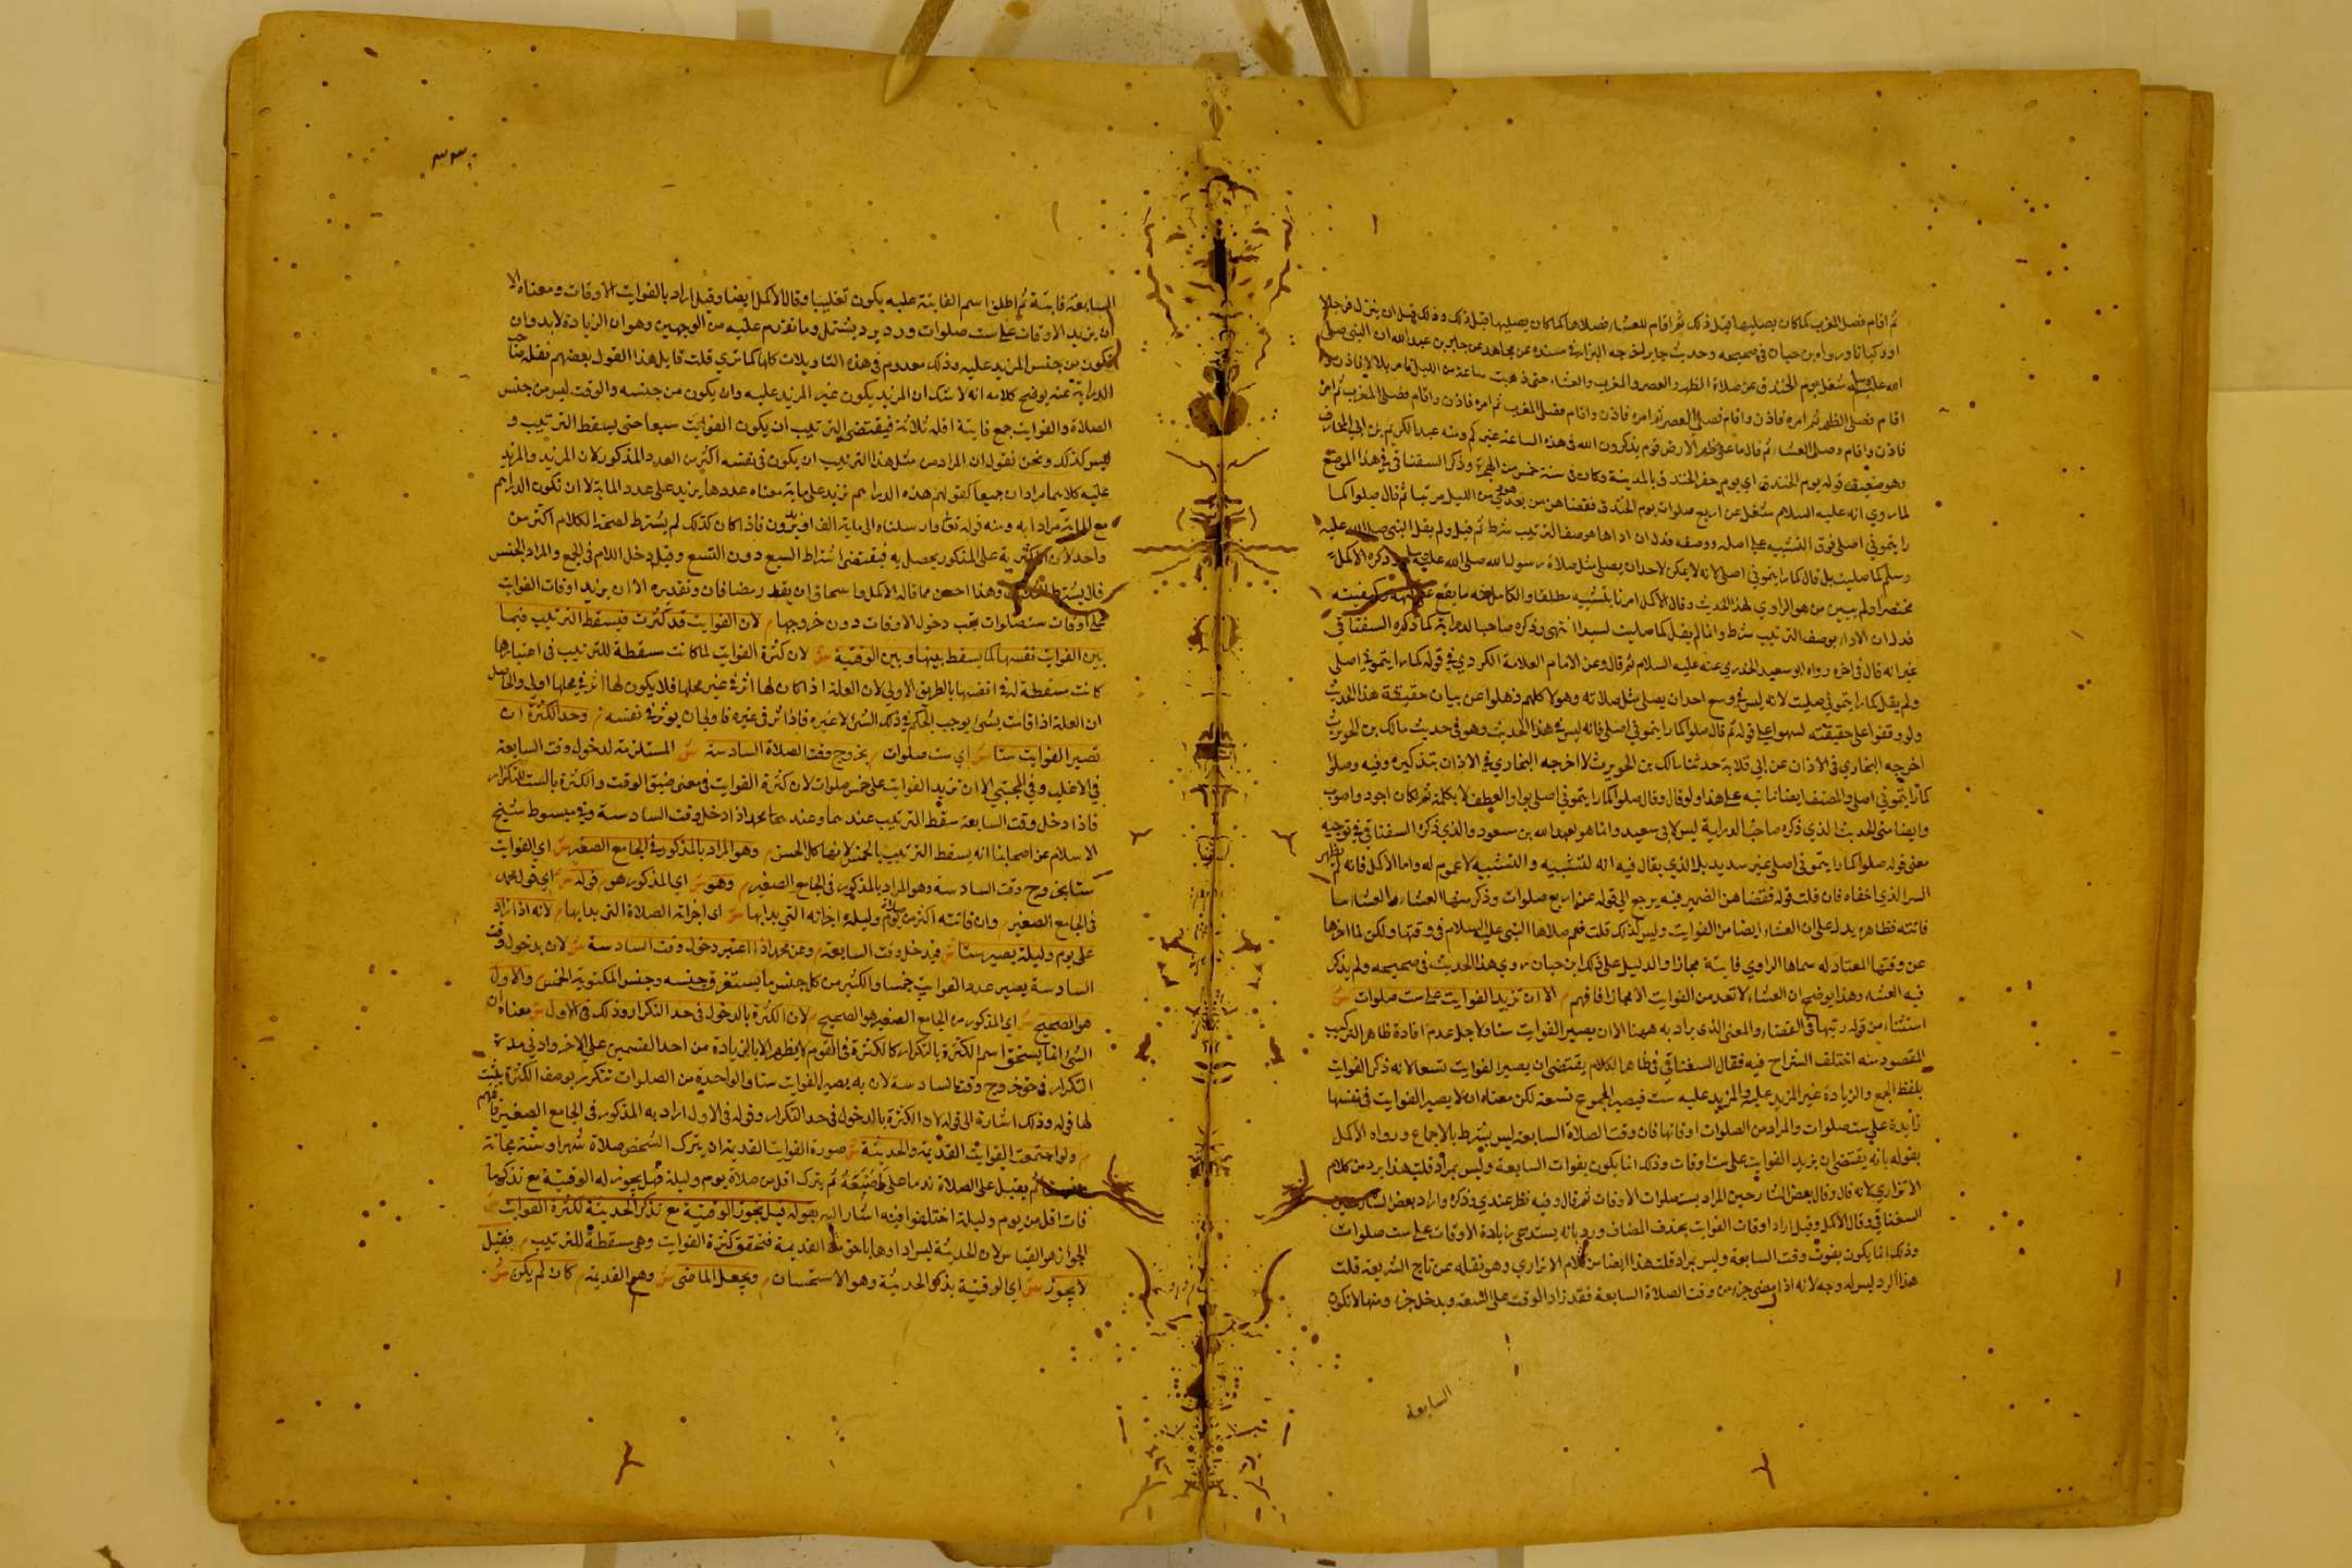 ثم اقام فصل المغرب كما كان يصليها قبل ذلك ثم اقام للعشاء فصلاها كما كان يصليها قبل ذلك وذلك قبل ان ينزل فرجالا
او ركبانا ورواه ابن حبان في صحيحه وحديث جابر اخرجه البزار في مسنده عن مجاهد عن جابر بن عبد الله ان النبي صلى
الله عليه وسلم شغل يوم الخندق عن صلاة الظهر والعصر والمغرب والعشاء حتى ذهبت ساعة من الليل فامر بلالا فاذن و
اقام فصلى الظهر ثم امره فاذن واقام فصلى العصر ثم امره فاذن واقام فصلى المغرب ثم امره فاذن واقام فصلى المغرب ثم امره
فاذن واقام وصلى العشاء ثم قال ما على ظهر الارض قوم يذكرون الله في هذه الساعة غيركم وفيه عبد الكريم بن ابي المخارق
وهو ضعيف قوله يوم الخندق اي يوم حفر الخندق بالمدينة وكان في سنة خمس من الهجرة وذكر السغناقي في هذا الموضع
لما روي انه عليه السلام شغل عن اربع صلوات يوم الخندق فقضاهن من بعد هوي من الليل مرتبا ثم قال صلوا كما
رايتموني اصلي فوق التشبيه على اصله ووصفه فدل ان اداها هو صفة الترتيب شرط ثم قيل ولم يقل النبي صلى الله عليه
وسلم كما صليت بل قال كما رايتموني اصلي لانه لا يمكن لاحد ان يصلي مثل صلاة رسول الله صلى الله عليه وسلم وذكره الاكمل
مختصرا ولم يبين من هو الراوي لهذا الحديث وقال الاكمل امرنا بتشبيه مطلقا والكامل منه ما يقع وكيفيته
فدل ان الاداء بوصف الترتيب شرط وانما لم يقل كما صليت لسيدا انتهى وذكره صاحب الدراية كما ذكره السغناقي
غير انه قال في اخره رواه ابو سعيد الخدري عنه عليه السلام ثم قال وعن الامام العلامة الكردري في قوله كما رايتموني اصلي
ولم يقل كما رايتموني صليت لانه ليس في وسع احد ان يصلي مثل صلاته وهولا كلهم ذهلوا عن بيان حقيقة هذا الحديث
ولو وقفوا على حقيقته لسهوا على قوله ثم قال صلوا كما رايتموني اصلي فانه ليس في هذا الحديث وهو في حديث مالك بن الحويرث
اخرجه البخاري في الاذان عن ابي قلابة حدثنا مالك بن الحويرث لا اخرجه البخاري في الاذان بتذكيره وفيه وصلوا
كما رايتموني اصلي والمصنف ايضا ما نبه على هذا ولو قال وقال صلوا كما رايتموني اصلي بواو العطف لا بكلمة ثم لكان اجود واصوب
وايضا متن الحديث الذي ذكره صاحب الدراية ليس لابي سعيد وانما هو لعبد الله بن مسعود والذي ذكره السغناقي في توجيه
معنى قوله صلوا كما رايتموني اصلي غير سديد بل الذي يقال فيه انه لتشبيه والتشبيه لا عموم له واما الاكمل فانه لم يظهر
السر الذي اخفاه فان قلت قوله فقضاهن الضمير فيه يرجع الى قوله عن اربع صلوات وذكر منها العشاء والعشاء ما
فاتته فظاهره يدل على ان العشاء ايضا من الفوايت وليس كذلك قلت فلم صلاها النبي عليه السلام في وقتها ولكن لما اخرها
عن وقتها المعتاد له سماها الراوي فايتة مجازا والدليل على ذلك ابن حبان روي هذا الحديث في صحيحه ولم يذكر
فيه العشاء وهذا يوضح ان العشاء لا تعد من الفوايت الا مجازا فافهم م الا ان تزيد الفوايت على ست صلوات ش
استثناء من قوله رتبها في القضاء والمعنى الذي يراد به ههنا الا ان يصير الفوايت ستا ولاجل عدم افادة ظاهر التركيب
المقصود منه اختلف الشراح فيه فقال السغناقي في ظاهر الكلام يقتضي ان يصير الفوايت تسعا لانه ذكر الفوايت
بلفظ الجمع والزيادة غير المزيد عليه والمزيد عليه ست فيصير المجموع تسعة لكن معناه ان لا يصير الفوايت في نفسها
زايدة على ست صلوات والمراد من الصلوات اوقاتها فان وقت الصلاة السابعة ليس بشرط بالاجماع ورواه الاكمل
بقوله بانه يقتضي ان يزيد الفوايت على ست اوقات وذلك انما يكون بفوات السابعة وليس بمراد قلت هذا يرد من كلام
الاتزاري لانه قال وقال بعض الشارحين المراد بست صلوات الاوقات ثم قال وفيه نظر عندي وذكره واراد بعض الشارحين
السغناقي وقال الاكمل وقيل اراد اوقات الفوايت بحذف المضاف ورد بانه يستدعي زيادة الاوقات على ست صلوات
وذلك انما يكون بفوت وقت السابعة وليس بمراد قلت هذا ايضا من كلام الاتزاري وهو نقله عن تاج الشريعة قلت
هذا الرد ليس له وجه لانه اذا مضى جزء من وقت الصلاة السابعة فقد زاد الوقت على الستة ويدخل جزء ومنها لا تكون
السابعة
السابعة فايتة ثم اطلق اسم الفايتة عليه يكون تغليبا وقال الاكمل ايضا وقيل اراد بالفوايت الاوقات ومعناه الا
ان يزيد الاوقات على ست صلوات ورد يرد يشتمل وما تقدم عليه من الوجهين وهو ان الزيادة لا بد وان
تكون من جنس المزيد عليه وذلك معدوم في هذه التاويلات كلها كما تري قلت قايل هذا القول بعضهم نقله صاحب
الدراية عنه يوضح كلامه انه لا شك ان المزيد يكون غير المزيد عليه وان يكون من جنسه والوقت ليس من جنس
الصلاة والفوايت جمع فايتة اقله ثلاثة فيقتضي الترتيب ان يكون الفوايت سبعا حتى يسقط الترتيب و
ليس كذلك ونحن نقول ان المراد من مثل هذا الترتيب ان يكون في نفسه اكثر من العدد المذكور لان المزيد والمزيد
عليه كلاهما مرادان جميعا كقولهم هذه الدراهم تزيد على ماية معناه عددها يزيد على عدد الماية لا ان تكون الدراهم
مع الماية مرادا به ومنه قوله تعالى وارسلناه الى ماية الف او يزيدون فاذا كان كذلك لم يشترط لصحة الكلام اكثر من
واحد لان الاكثرية على المذكور يحصل به فيقتضي اشتراط السبع دون التسع وقيل دخل اللام في الجمع والمراد الجنس
فلا يشترط وهذا احسن مما قاله الاكمل واسحاق ان يقدر مضافان وتقديره الا ان يزيد اوقات الفوايت
على اوقات ست صلوات بحب دخول الاوقات دون خروجها م لان الفوايت قد كثرت فيسقط الترتيب فيما
بين الفوايت نفسها كما يسقط بينها وبين الوقتية ش لان كثرة الفوايت لما كانت مسقطة للترتيب في اعتبارها
كانت مسقطة له في انفسها بالطريق الاولى لان العلة اذا كان لها اثر في غير محلها فلا يكون لها اثر في محلها اولى والحاصل
ان العلة اذا قامت بشئ يوجب الحكم في ذلك الشئ لا غيره فاذا اثر في غيره فاولى ان يوثر في نفسه م وحد الكثرة ان
تصير الفوايت ستا ش اي ست صلوات م بخروج وقت الصلاة السادسة ش المستلزمة لدخول وقت السابعة
في الاغلب وفي المجتبي الا ان تزيد الفوايت على خمس صلوات لان كثرة الفوايت في معنى ضيق الوقت والكثرة بالست للتكرار
فاذا دخل وقت السابعة سقط الترتيب عندهما وعند محمد اذا دخل وقت السادسة وفي مبسوط شيخ
الاسلام عن اصحابنا انه يسقط الترتيب بالخمس لانها كل الجنس م وهو المراد بالمذكور في الجامع الصغير ش اي الفوايت
ستا بخروج وقت السادسة وهو المراد بالمذكور في الجامع الصغير م وهو ش اي المذكور هو م قوله ش اي قول محمد
في الجامع الصغير م وان فاتته اكثر من صلاة يوم وليلة اجزاته التي بدابها ش اي اجزاته الصلاة التي بدابها م لانه اذا زاد
على يوم وليلة يصير ستا ش فيدخل وقت السابعة م وعن محمد اذا اعتبر دخول وقت السادسة ش لان بدخول وقت
السادسة يصير عدد الفوايت خمسا والكثير من كل جنس ما يستغرق جنسه وجنس المكتوبة الخمس م والاول
هو الصحيح ش اي المذكور من الجامع الصغير هو الصحيح م لان الكثرة بالدخول في حد التكرار وذلك في الاول ش معناه ان
الشئ انما يستحق اسم الكثرة بالتكرار كالكثرة في القوم لا يظهر الا بالزيادة من احد القسمين على الاخر وادنى مدة
التكرار في خروج وقت السادسة لان به يصير الفوايت ستا والواحدة من الصلوات تتكرر بوصف الكثرة يثبت
لها قوله وذلك اشارة الى قوله لان الكثرة بالدخول في حد التكرار وقوله في الاول اراد به المذكور في الجامع الصغير فافهم
م ولو اجتمعت الفوايت القديمة والحديثة ش صورة الفوايت القديمة ان يترك الشخص صلاة شهر او سنة مجانة
ثم يقبل على الصلاة ندما على ما ضيعه ثم يترك اقل من صلاة يوم وليلة فهل يجوز له الوقتية مع تذكر ما
فات اقل من يوم وليلة اختلفوا فيه اشار اليه بقوله قيل يجوز الوقتية مع تذكر الحديثة لكثرة الفوايت ش
الجواز هو القياس لان الحديثة ليس اداوها باحق من القديمة فتحقق كثرة الفوايت وهي مسقطة للترتيب م فقيل
لا يجوز ش اي الوقتية بذكر الحديثة وهو الاستحسان م ويجعل الماضي ش وهو القديمة م كان لم يكن ش